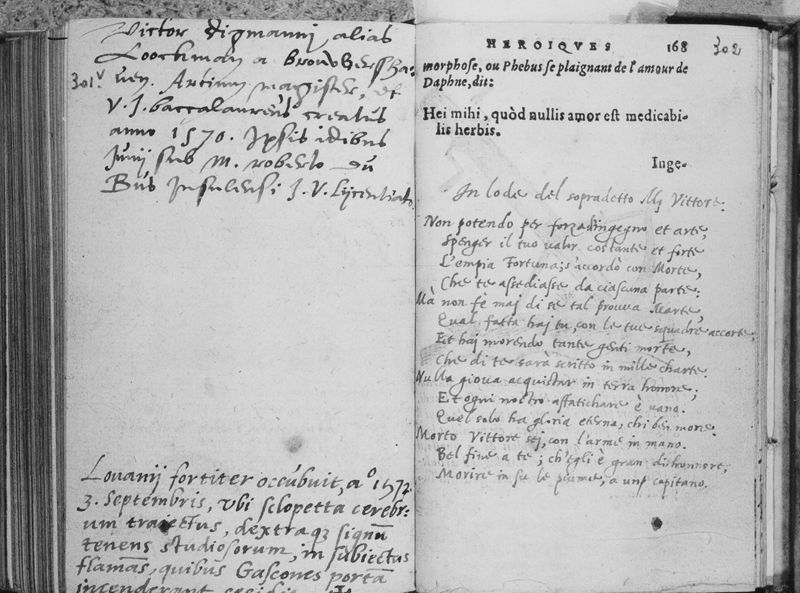 Victor Sigmannj alias
Loockman a brouvhersha-
301v
uen. Artium magister, et
V. J. baccalaureus creatus
anno 1570. Ipsis idibus
Junij sub M. roberto du
Bus Insulensi J. V. Lycentiato
Lovanij fortiter occubuit, aº 1572
3. Septembris, ubi sclopetta cerebr-
um traiectus, dextraq signu
tenens studiosorum, in subiectas
flamas, quibus Gascones porta
incenderant
HEROIQVES 168 302
morphose, ou Phebus se plaignant de l'amour de
Daphne, dit:
Hei mihi, quòd nullis amor est medicabi-
lis herbis.
Inge-
In lode del sopradetto Mʒ Vittore.
Non potendo per forza d'ingegno et arte,
Spenger il tuo valor costante et forte
L'empia Fortuna; s'accordò con Morte,
Che te assediasse da ciascuna parte:
Mà non fè maj di se tal prouua Marte,
Qual fatta haj tu, con le tue squadre accorte,
Et haj morendo tante genti morte,
Che di te sarà scritto in mille charte.
Nulla gioua acquistar in terra honore;
Et ogni nostro affatichare è vano.
Quel solo ha gloria eterna, chi ben more.
Morto Vittore sej, con l'arme in mano.
Bel fine a te; ch'egli è gran dishonnore,
Morire in su le piume, a un capitano.